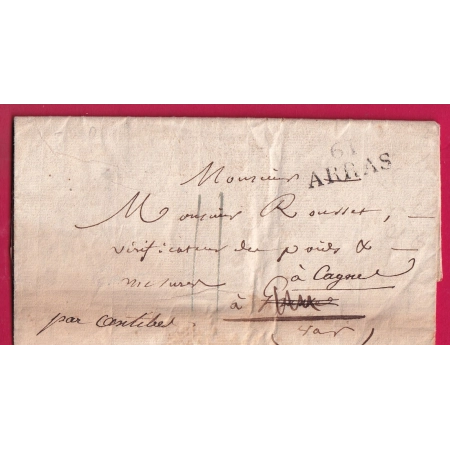 61
ARRAS
Monsieur
Monsieur Rousset,
vérificateur des poids &
mesures à Cagnes
à
par antibes (var)